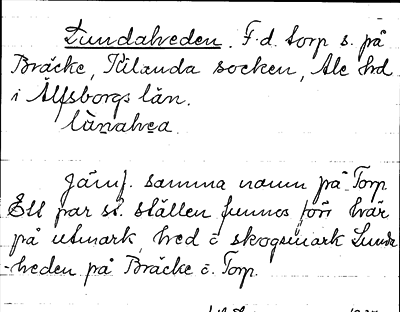 Lundalveden. F.d. torp s. på
Bräcke, Kilanda socken, Ale hrd
i Älfsborgs län.
lùnahvea
Jämf. samma namn på Torp
Ett par st. ställen funnos förr här
på utmark, hved c̄ skogsmark Lunda
-heden på Bräcke c̄. Torp.